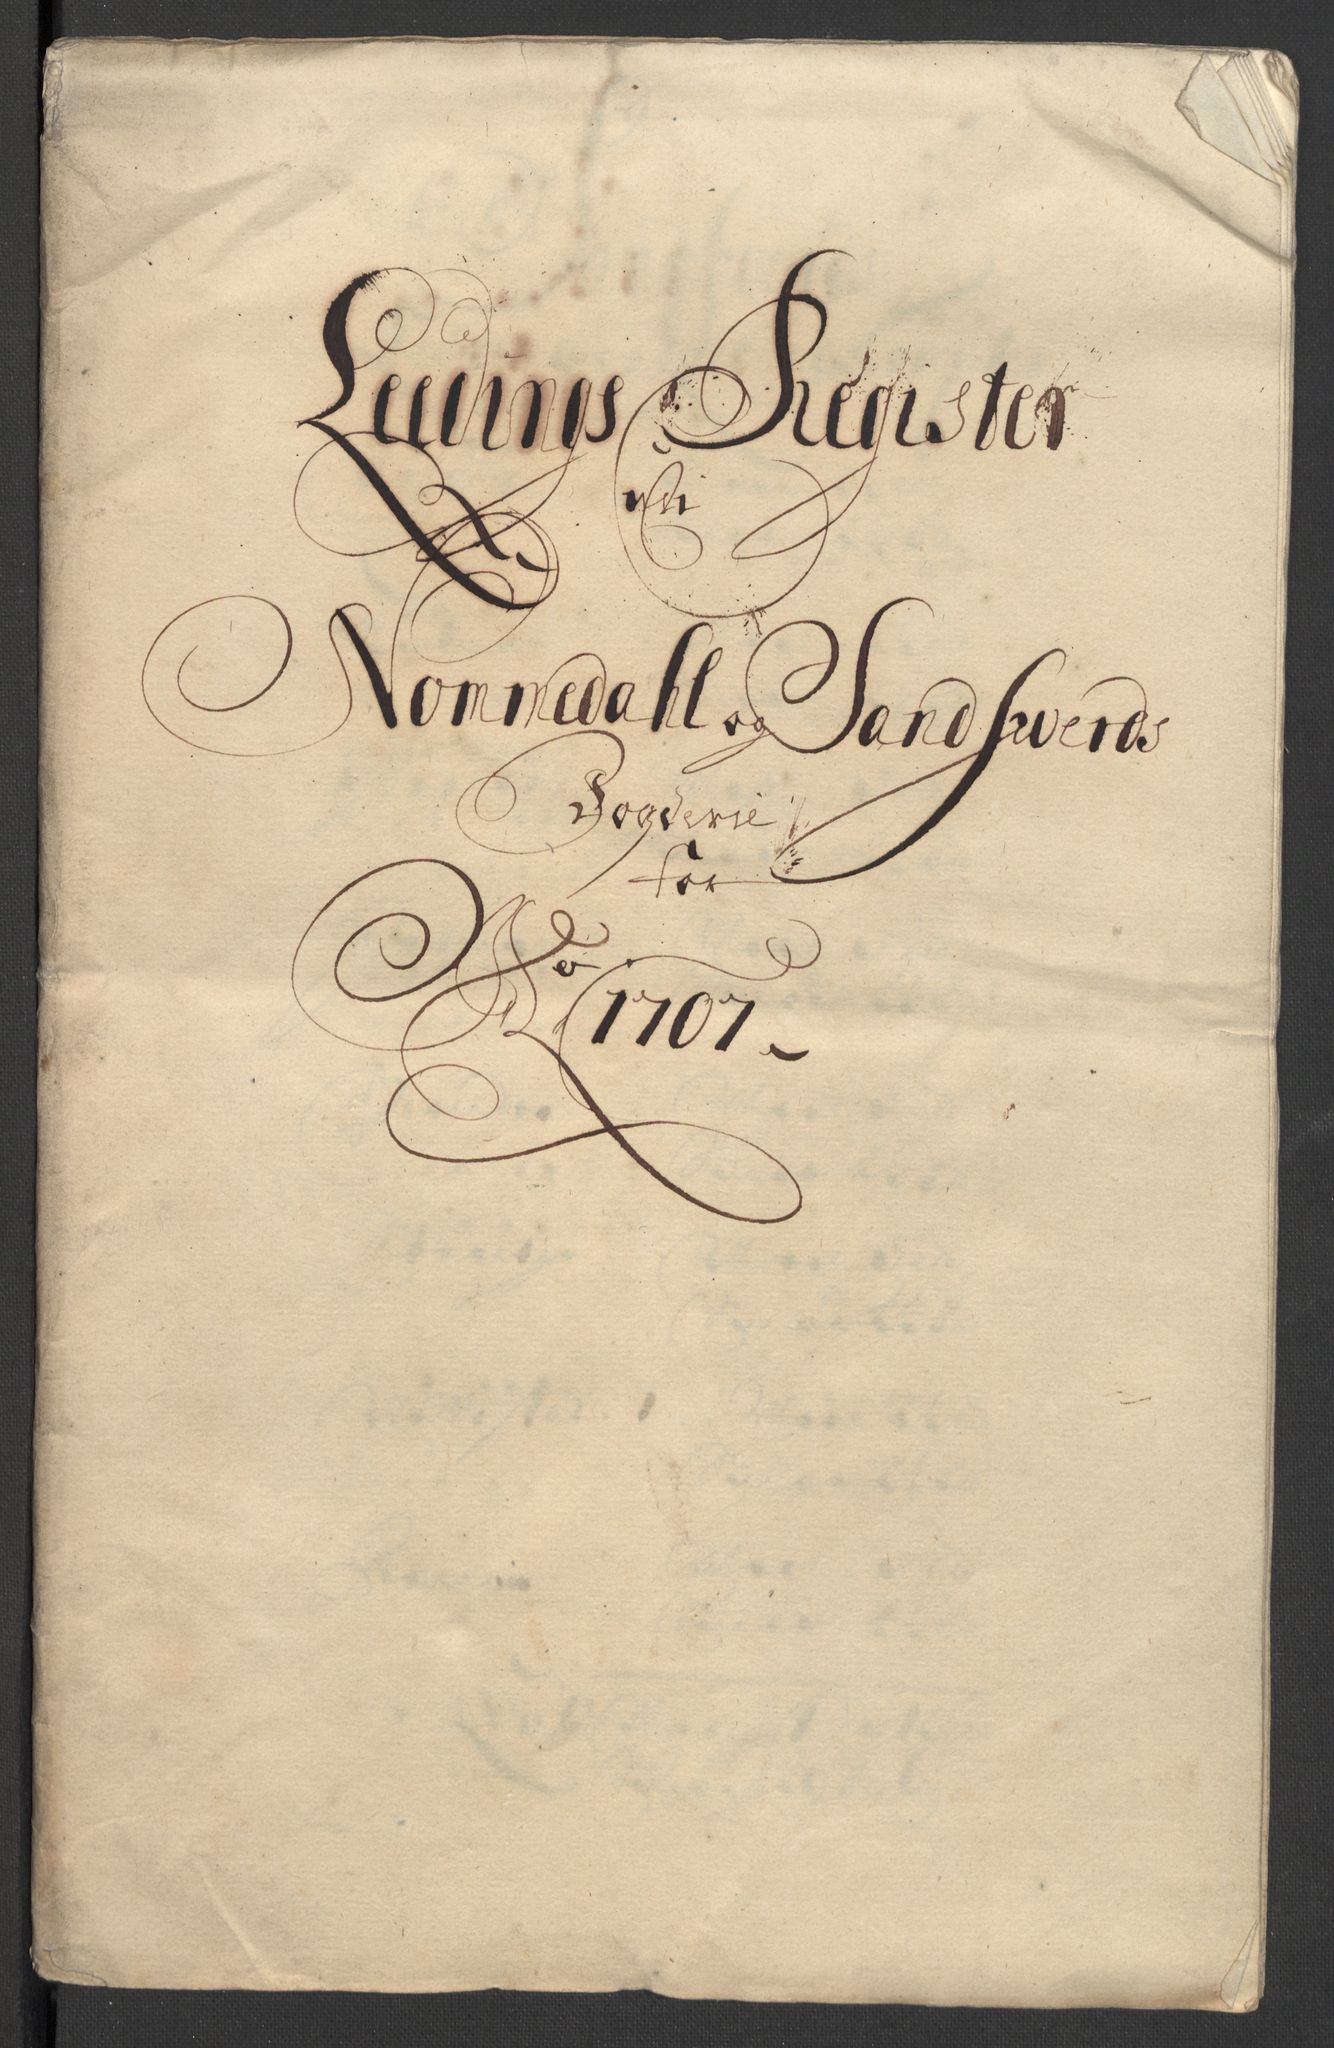 Leedings Register
udi
Nommedahl og Sandswerds
Fogderie
for
Ao
1707